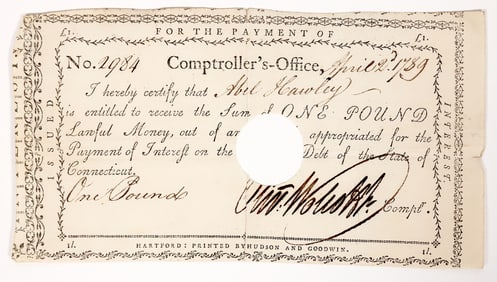 £1. FOR THE PAYMENT OF £1.
No. 2984 Comptroller's-Office, April 2d 1789
I hereby certify that Abel Hawley
is entitled to receive the Sum of ONE POUND
Lawful Money, out of an appropriated for the
Payment of Interest on the Debt of the State of
Connecticut.
One Pound
Compt.
ISSUED
INTEREST
1l. HARTFORD: PRINTED BY HUDSON AND GOODWIN. 1l.